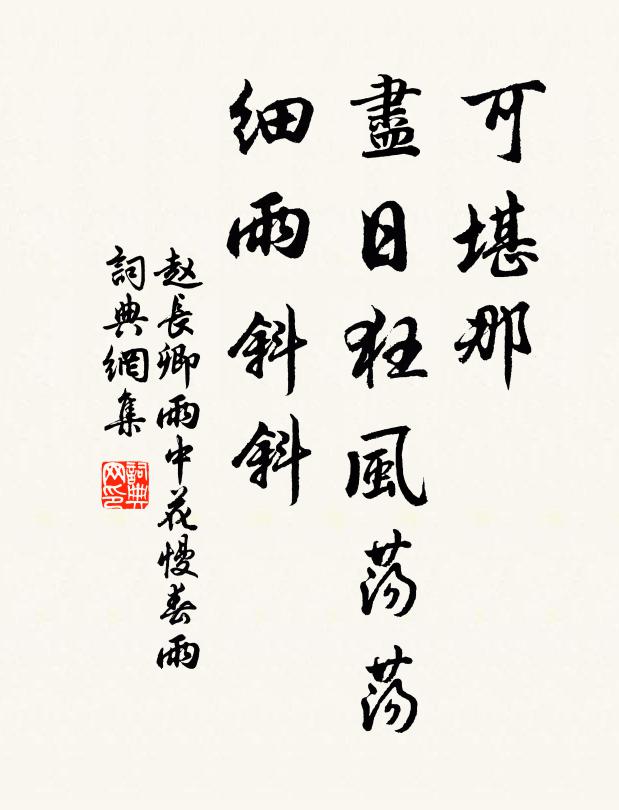 可堪那
盡日狂風蕩蕩
細雨斜斜
赵長卿雨中花慢春雨
詞典網集
詞典网印